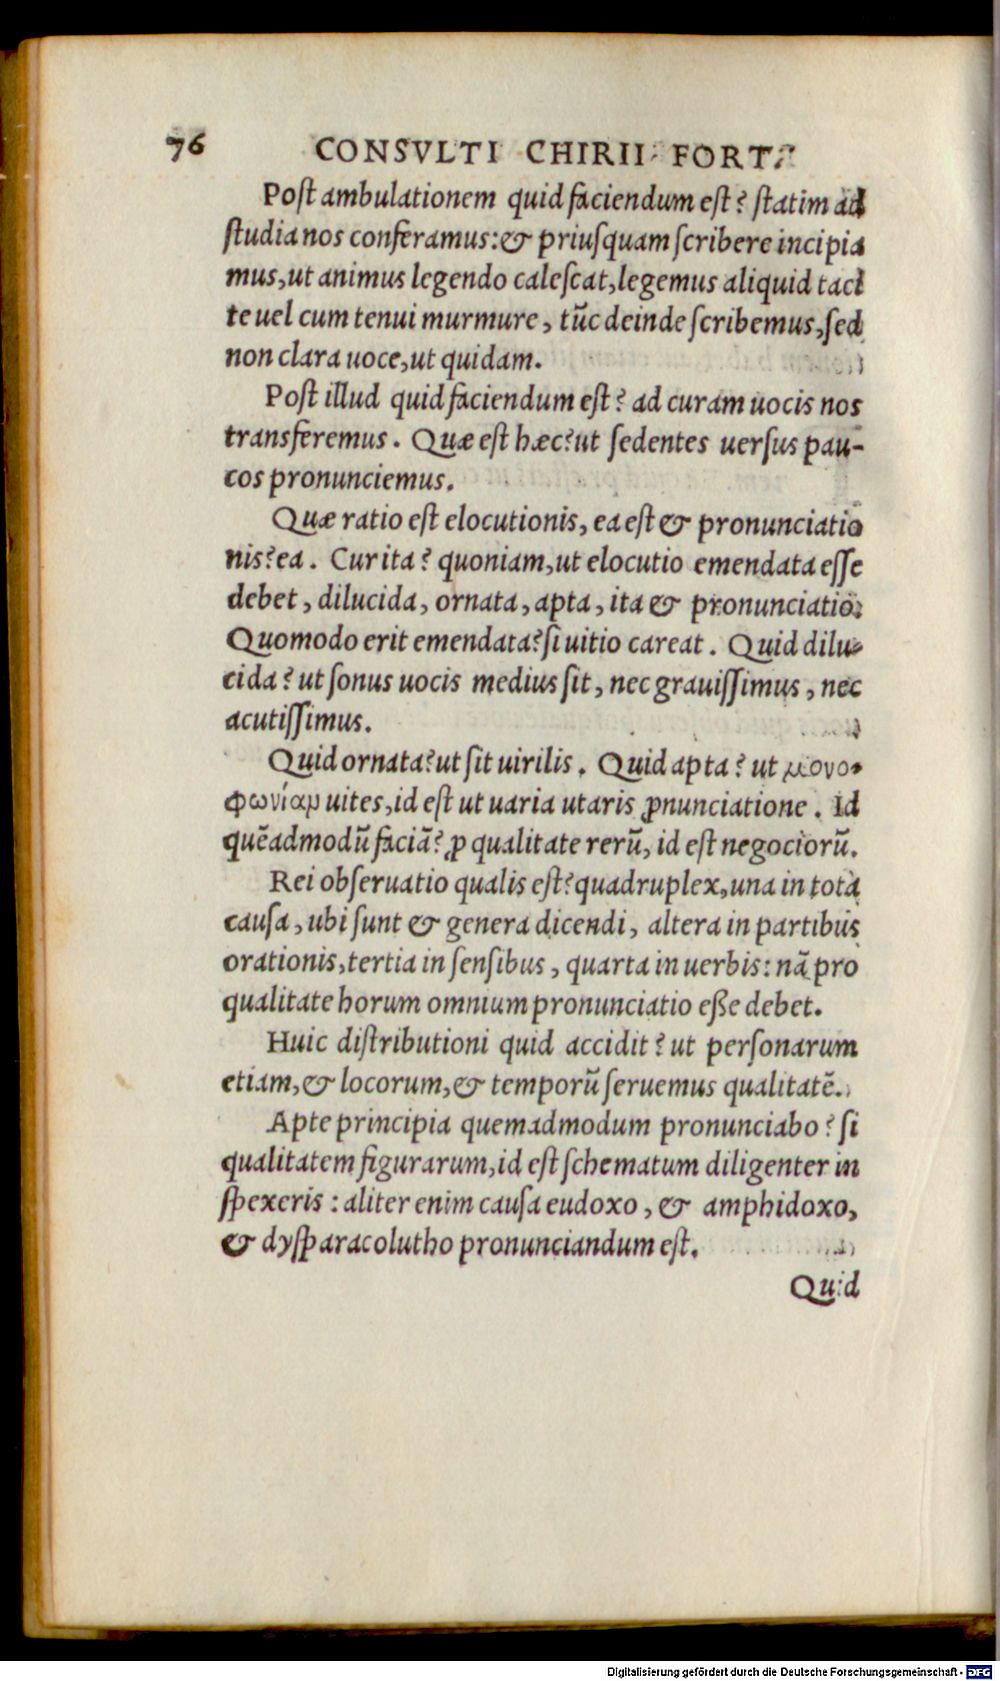 76 CONSVLTI CHIRII FORT.
Post ambulationem quid faciendum est? statim ad
studia nos conferamus:& priusquam scribere incipia
mus,ut animus legendo calescat,legemus aliquid taci
te uel cum tenui murmure, tūc deinde scribemus,sed
non clara uoce,ut quidam.
Post illud quid faciendum est? ad curam uocis nos
transferemus. Quæ est hæc?ut sedentes uersus pau-
cos pronunciemus.
Quæ ratio est elocutionis, ea est & pronunciatio
nis?ea. Cur ita? quoniam,ut elocutio emendata esse
debet, dilucida, ornata, apta, ita & pronunciatio.
Quomodo erit emendata?si uitio careat. Quid dilu-
cida? ut sonus uocis medius sit, nec grauissimus, nec
acutissimus.
Quid ornata?ut sit uirilis. Quid apta? ut μονο-
φωνίαμ uites,id est ut uaria utaris ꝓnunciatione. Id
quēadmodū faciā? ꝓ qualitate rerū, id est negociorū.
Rei obseruatio qualis est?quadruplex,una in tota
causa, ubi sunt & genera dicendi, altera in partibus
orationis,tertia in sensibus, quarta in uerbis: nā pro
qualitate horum omnium pronunciatio eße debet.
Huic distributioni quid accidit? ut personarum
etiam,& locorum,& temporū seruemus qualitatē.
Apte principia quemadmodum pronunciabo? si
qualitatem figurarum,id est schematum diligenter in
spexeris: aliter enim causa eudoxo, & amphidoxo,
& dysparacolutho pronunciandum est.
Quid
Digitalisierung gefördert durch die Deutsche Forschungsgemeinschaft - DFG